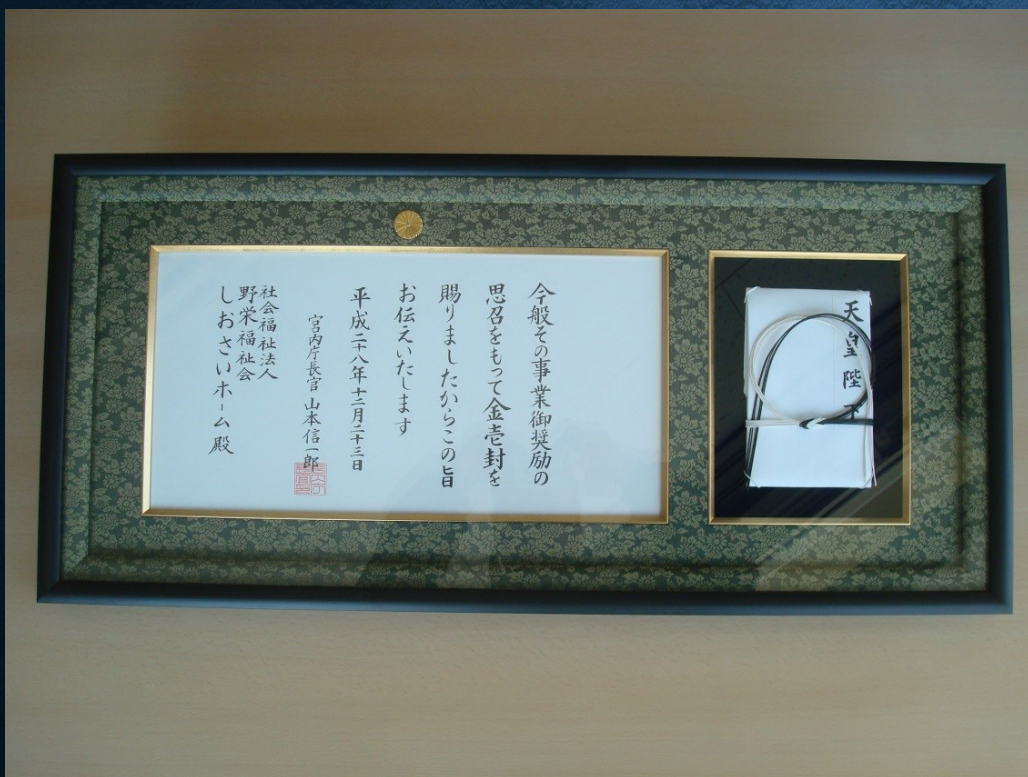 今般その事業御奨励の
思召をもって金壱封を
賜りましたからこの旨
お伝えいたします
平成二十八年十二月二十三日
宮内庁長官 山本信一郎
社会福祉法人
野栄福祉会
しおさいホーム殿
天皇陛下